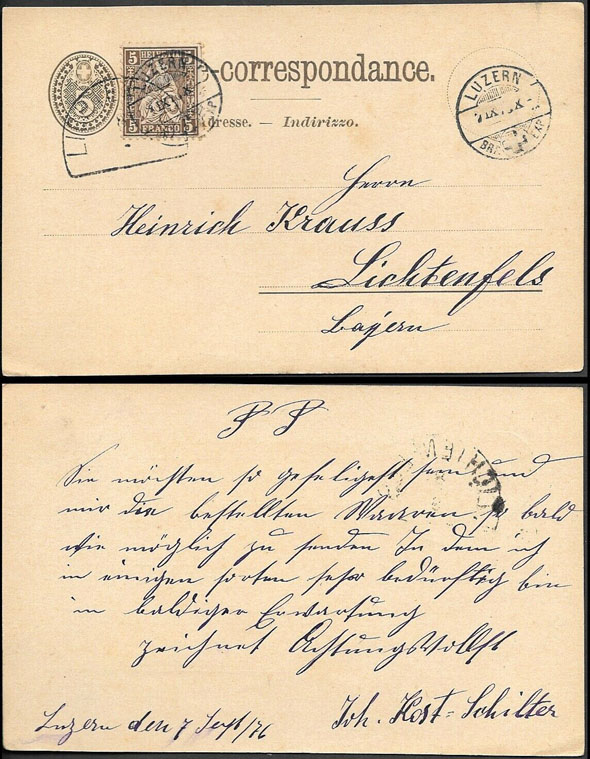 5
5 HELVETIA 5
5 FRANCO 5
-correspondance.
LUZERN
LUZERN
BRF. EXP.
dresse. — Indirizzo.
Herrn
Heinrich Krauss
Lichtenfels
Bayern
P P
Sie möchten so gefeligest sein und
mir die bestellten Waaren so bald
wie möglich zu senden In dem ich
in einigen sorten sehr bedürftig bin
in baldiger Erwartung
zeichnet Achtungsvollst
Joh. Host-Schilter
Luzern den 7 Sept/76